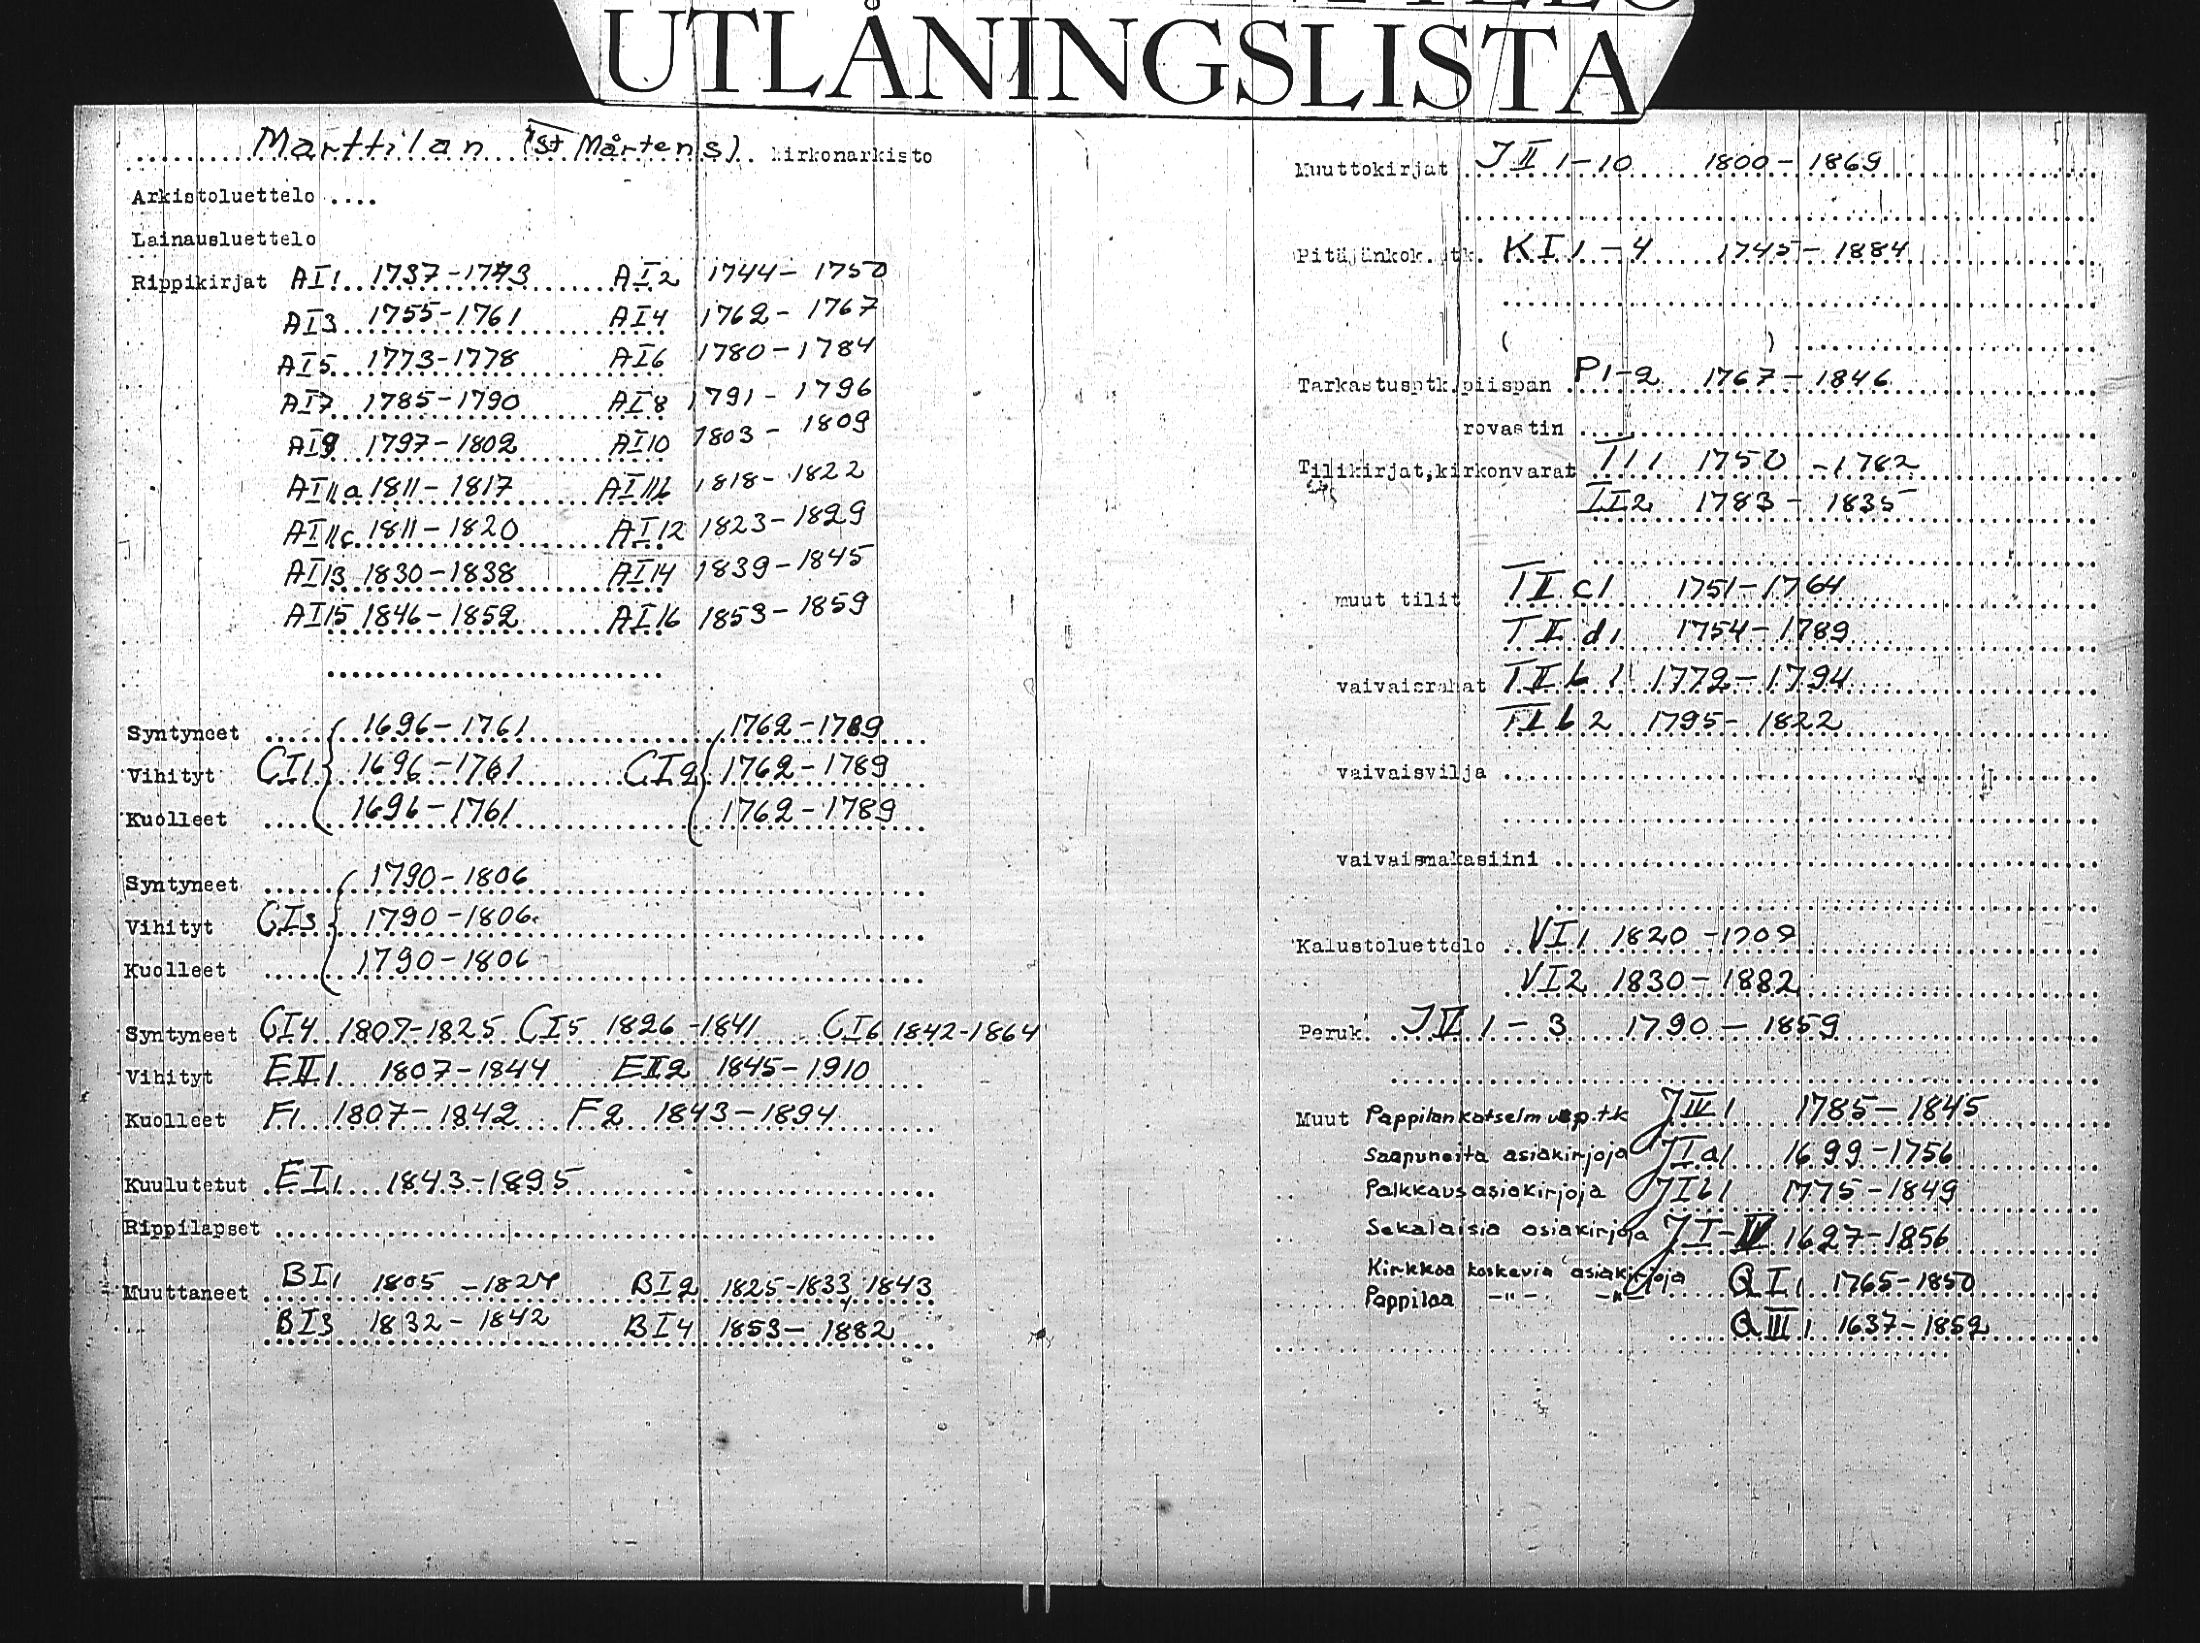 UTLÅNINGSLISTA
Marttilan (St Mårtens) kirkonarkisto
Arkistoluettelo
Lainausluettelo
Rippikirjat AI1 1737-1743 AI2 1744-1750
AI3 1755-1761 AI4 1762-1767
AI5 1773-1778 AI6 1780-1784
AI7 1785-1790 AI8 1791-1796
AI9 1797-1802 AI10 1803-1809
AI11a 1811-1817 AI11b 1818-1822
AI11c 1811-1820 AI12 1823-1829
AI13 1830-1838 AI14 1839-1845
AI15 1846-1852 AI16 1853-1859
Syntyneet 1696-1761 1762-1789
Vihityt CI1 1696-1761 CI2 1762-1789
Kuolleet 1696-1761 1762-1789
Syntyneet 1790-1806
Vihityt CI3 1790-1806
Kuolleet 1790-1806
Syntyneet CI4 1807-1825 CI5 1826-1841 CI6 1842-1864
Vihityt EII1 1807-1844 EII2 1845-1910
Kuolleet F1 1807-1842 F2 1843-1894
Kuulutetut EI1 1843-1895
Rippilapset
Muuttaneet BI1 1805-1827 BI2 1825-1833, 1843
BI3 1832-1842 BI4 1853-1882
Muuttokirjat JII1-10 1800-1869
Pitäjänkok.ptk. KI1-4 1745-1884
( )
Tarkastusptk.piispan P1-2 1767-1846
rovastin
Tilikirjat,kirkonvarat TI1 1750-1782
II2 1783-1835
muut tilit TIIc1 1751-1764
TIId1 1754-1789
vaivaisrahat TIIb1 1772-1794
TIIb2 1795-1822
vaivaisvilja
vaivaismakasiini
Kalustoluettelo VI1 1820
VI2 1830-1882
Peruk. 1-3 1790-1859
Muut Pappilankatselmusp.tk JIV1 1785-1845
Saapuneita asiakirjoja JIa1 1699-1756
Palkkausasiakirjoja JIb1 1775-1849
Sekalaisia asiakirjoja 1627-1856
Kirkkoa koskevia asiakirjoja QI1 1765-1850
Pappilaa -"- -"-
QIII1 1637-1852